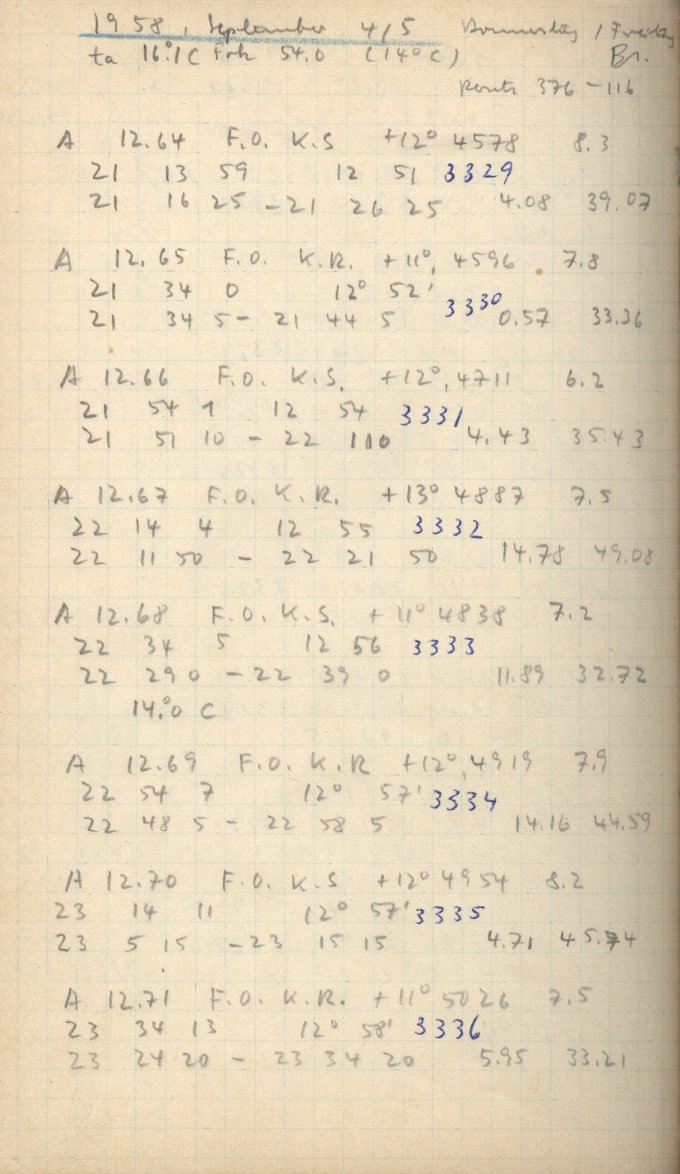 1958, September 4/5 Donnerstag / Freitag
ta 16.°1 C Fok 54.0 (14°C) Br.
376 - 116
A 12.64 F.O. K.S +12° 4578 8.3
21 13 59 12 51 3329
21 16 25 - 21 26 25 4.08 39.07
A 12.65 F.O. K.R. +11°, 4596 7.8
21 34 0 12° 52' 3330
21 34 5 - 21 44 5 0.57 33.36
A 12.66 F.O. K.S. +12°, 4711 6.2
21 54 1 12 54 3331
21 51 10 - 22 1 10 4.43 35.43
A 12.67 F.O. K.R. +13° 4887 7.5
22 14 4 12 55 3332
22 11 50 - 22 21 50 14.78 49.08
A 12.68 F.O. K.S. +11° 4838 7.2
22 34 5 12 56 3333
22 29 0 - 22 39 0 11.89 32.72
14.°0 C
A 12.69 F.O. K.R +12°, 4919 7.9
22 54 7 12° 57' 3334
22 48 5 - 22 58 5 14.16 44.59
A 12.70 F.O. K.S +12° 4954 8.2
23 14 11 12° 57' 3335
23 5 15 - 23 15 15 4.71 45.74
A 12.71 F.O. K.R. +11° 5026 7.5
23 34 13 12° 58' 3336
23 24 20 - 23 34 20 5.95 33.21